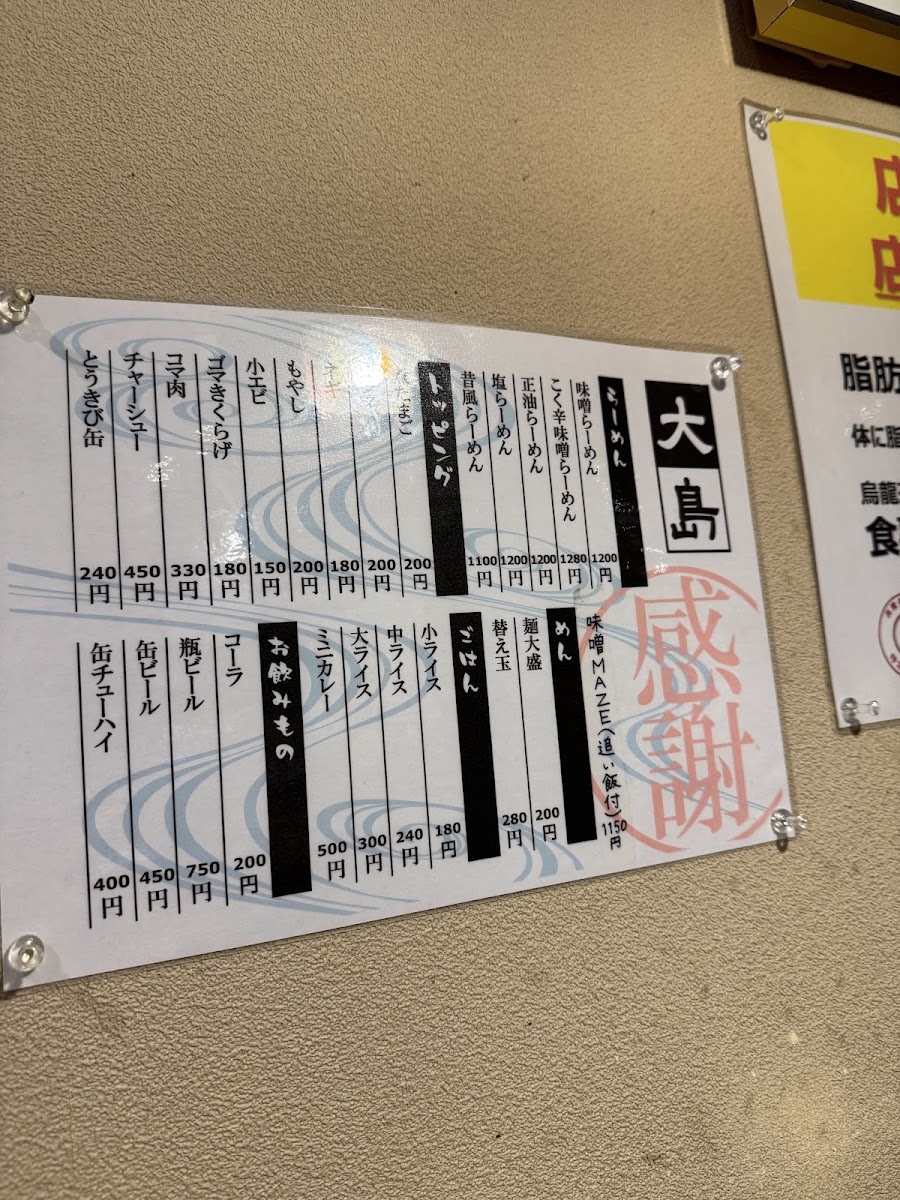 大島
感謝
らーめん
味噌らーめん 1200円
こく辛味噌らーめん 1280円
正油らーめん 1200円
塩らーめん 1200円
昔風らーめん 1100円
トッピング
たまご 200円
200円
180円
もやし 200円
小エビ 150円
ゴマきくらげ 180円
コマ肉 330円
チャーシュー 450円
とうきび缶 240円
味噌MAZE(追い飯付) 1150円
めん
麺大盛 200円
替え玉 280円
ごはん
小ライス 180円
中ライス 240円
大ライス 300円
ミニカレー 500円
お飲みもの
コーラ 200円
瓶ビール 750円
缶ビール 450円
缶チューハイ 400円
店
店
脂肪
体に脂
烏龍
食